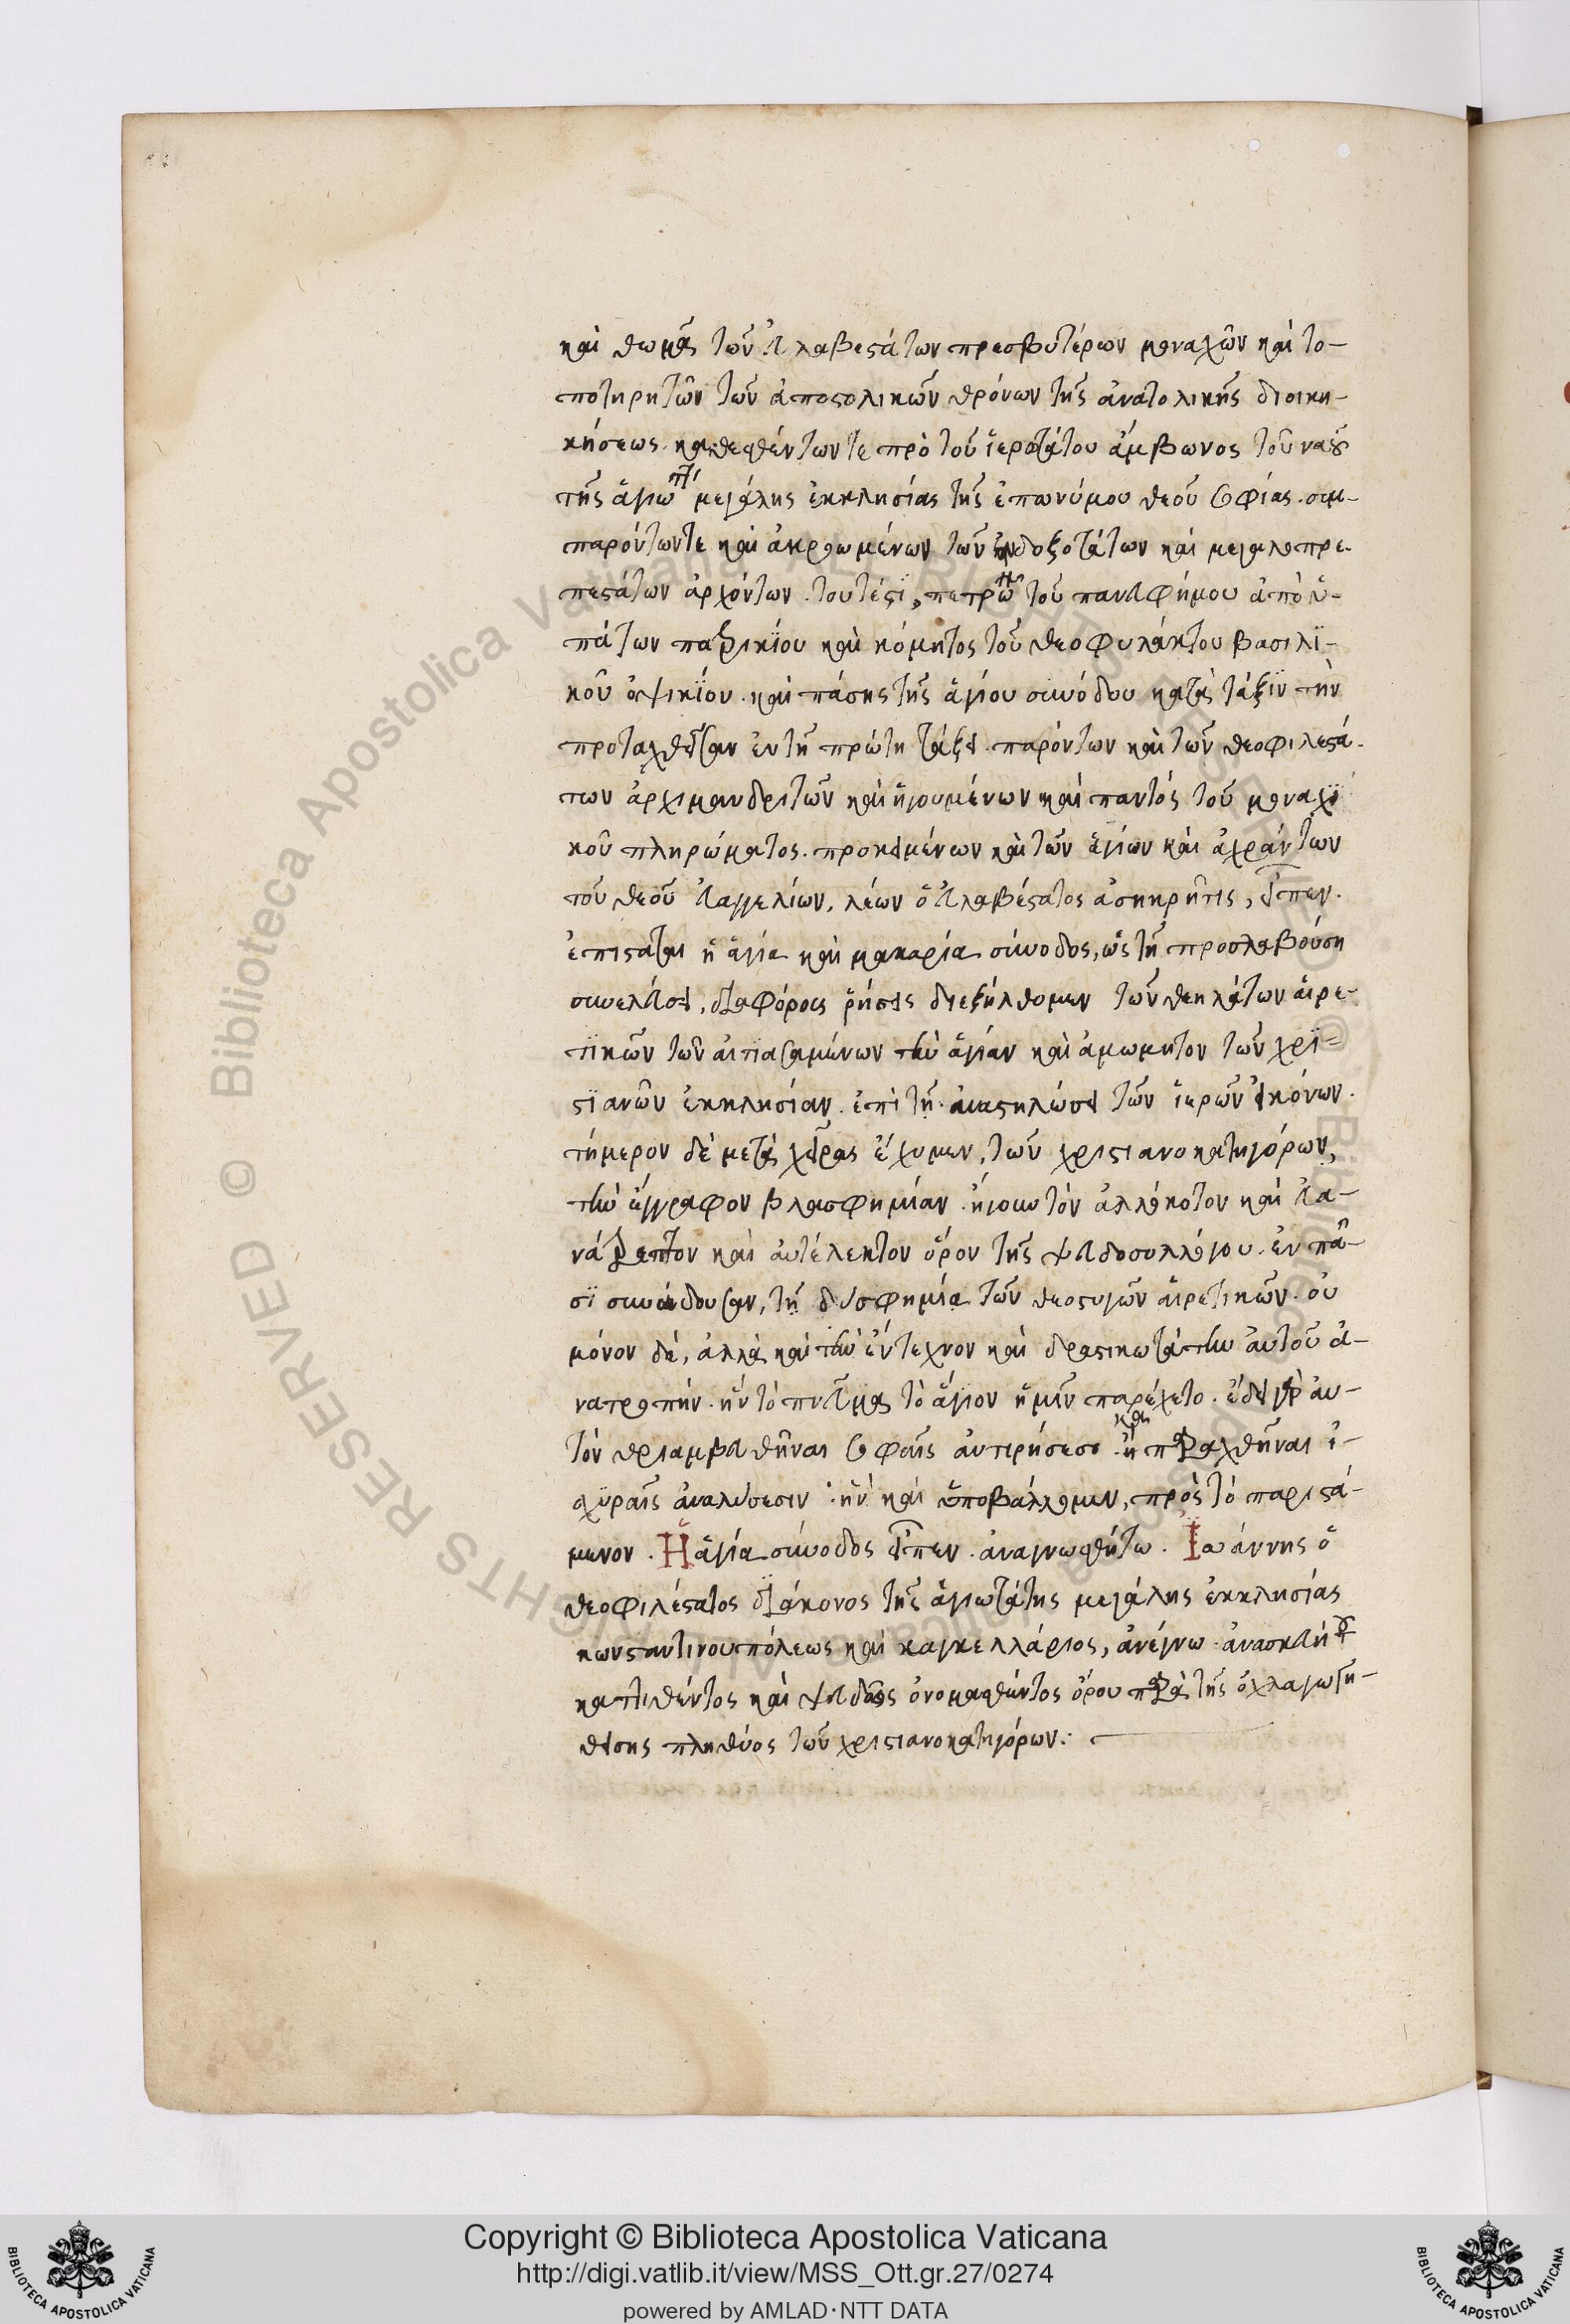 καὶ θωμᾶ τῶν εὐλαβεστάτων πρεσβυτέρων μοναχῶν καὶ το-
ποτηρητῶν τῶν ἀποστολικῶν θρόνων τῆς ἀνατολικῆς διοικη-
κήσεως· καθεσθέντων τε πρὸ τοῦ ἱεροτάτου ἄμβωνος τοῦ ναοῦ
τῆς ἁγιωτ μεγάλης ἐκκλησίας τῆς ἐπωνύμου θεοῦ σοφίας· συμ-
παρόντων τε καὶ ἀκροωμένων τῶν ἐνδοξοτάτων καὶ μεγαλοπρε-
πεστάτων ἀρχόντων· τουτέστι, πετρω τοῦ πανευφήμου ἀπὸ ὑ-
πάτων πατρικίου καὶ κόμητος τοῦ θεοφυλάκτου βασιλϊ-
κοῦ ὀψικίου· καὶ πάσης τῆς ἁγίου συνόδου κατὰ τάξϊν τὴν
προταχθεῖσαν ἐν τῇ πρώτη τάξει· παρόντων καὶ τῶν θεοφιλεστά-
των ἀρχιμανδριτῶν καὶ ἡγουμένων καὶ παντός τοῦ μοναχϊ
κοῦ πληρώματος· προκειμένων καὶ τῶν ἁγίων καὶ ἀχράντων
τοῦ θεοῦ εὐαγγελίων, λέων ὁ εὐλαβέστατος ἀσηκρῆτις, εἶπεν·
ἐπίσταται ἡ ἁγία καὶ μακαρία σύνοδος, ὡς τῇ προσλαβούση
συνελεύσει, διαφόροις ῥήσεις διεξήλθομεν τῶν θεηλάτων αἱρε-
τικῶν τῶν αἰτιασαμένων τὴν ἁγίαν καὶ ἀμωμητον τῶν χρι-
στϊανῶν ἐκκλησίαν· ἐπὶ τῇ ἀναστηλώσει τῶν ἱερῶν εἰκόνων·
τήμερον δὲ μετὰ χεῖρας ἔχομεν, τῶν χριστιανοκατηγόρων,
τὴν ἔγγραφον βλασφημίαν· ἤγουν τὸν ἀλλόκοτον καὶ εὐα-
νάτρεπτον καὶ αὐτέλεκτον ὅρον τῆς ψευδοσυλλόγου· ἐν πᾶ-
σϊ συνάδουσαν, τῇ δυσφημία τῶν θεοστυγῶν αἱρετικῶν· οὐ
μόνον δὲ, ἀλλὰ καὶ τὴν ἔντεχνον καὶ δραστικωτάτην αὐτοῦ ἀ-
νατροπήν· ἣν τὸ πνεῦμα τὸ ἅγιον ἡμῖν παρέχετο· ἔδει γὰρ αὐ-
τὸν θριαμβευθῆναι σοφαῖς ἀντιρήσεσι· ἢ καὶ σπαραχθῆναι ἰ-
σχυραῖς ἀναλύσεσιν· ἣν καὶ ὑποβάλλομεν, πρὸς τὸ παριστά-
μενον· Ἡ ἁγία σύνοδος εἶπεν· ἀναγνωσθήτω· Ἰωάννης ὁ
θεοφιλέστατος διάκονος τῆς ἁγιωτάτης μεγάλης ἐκκλησίας
κωνσταντινουπόλεως καὶ καγκελλάριος, ἀνέγνω· ἀνασκευὴ τοῦ
καττιθέντος καὶ ψευδῶς ὀνομασθέντος ὅρου παρὰ τῆς ὀχλαγωγη-
θείσης πληθύος τῶν χριστιανοκατηγόρων:
Copyright © Biblioteca Apostolica Vaticana
http://digi.vatlib.it/view/MSS_Ott.gr.27/0274
powered by AMLAD·NTT DATA